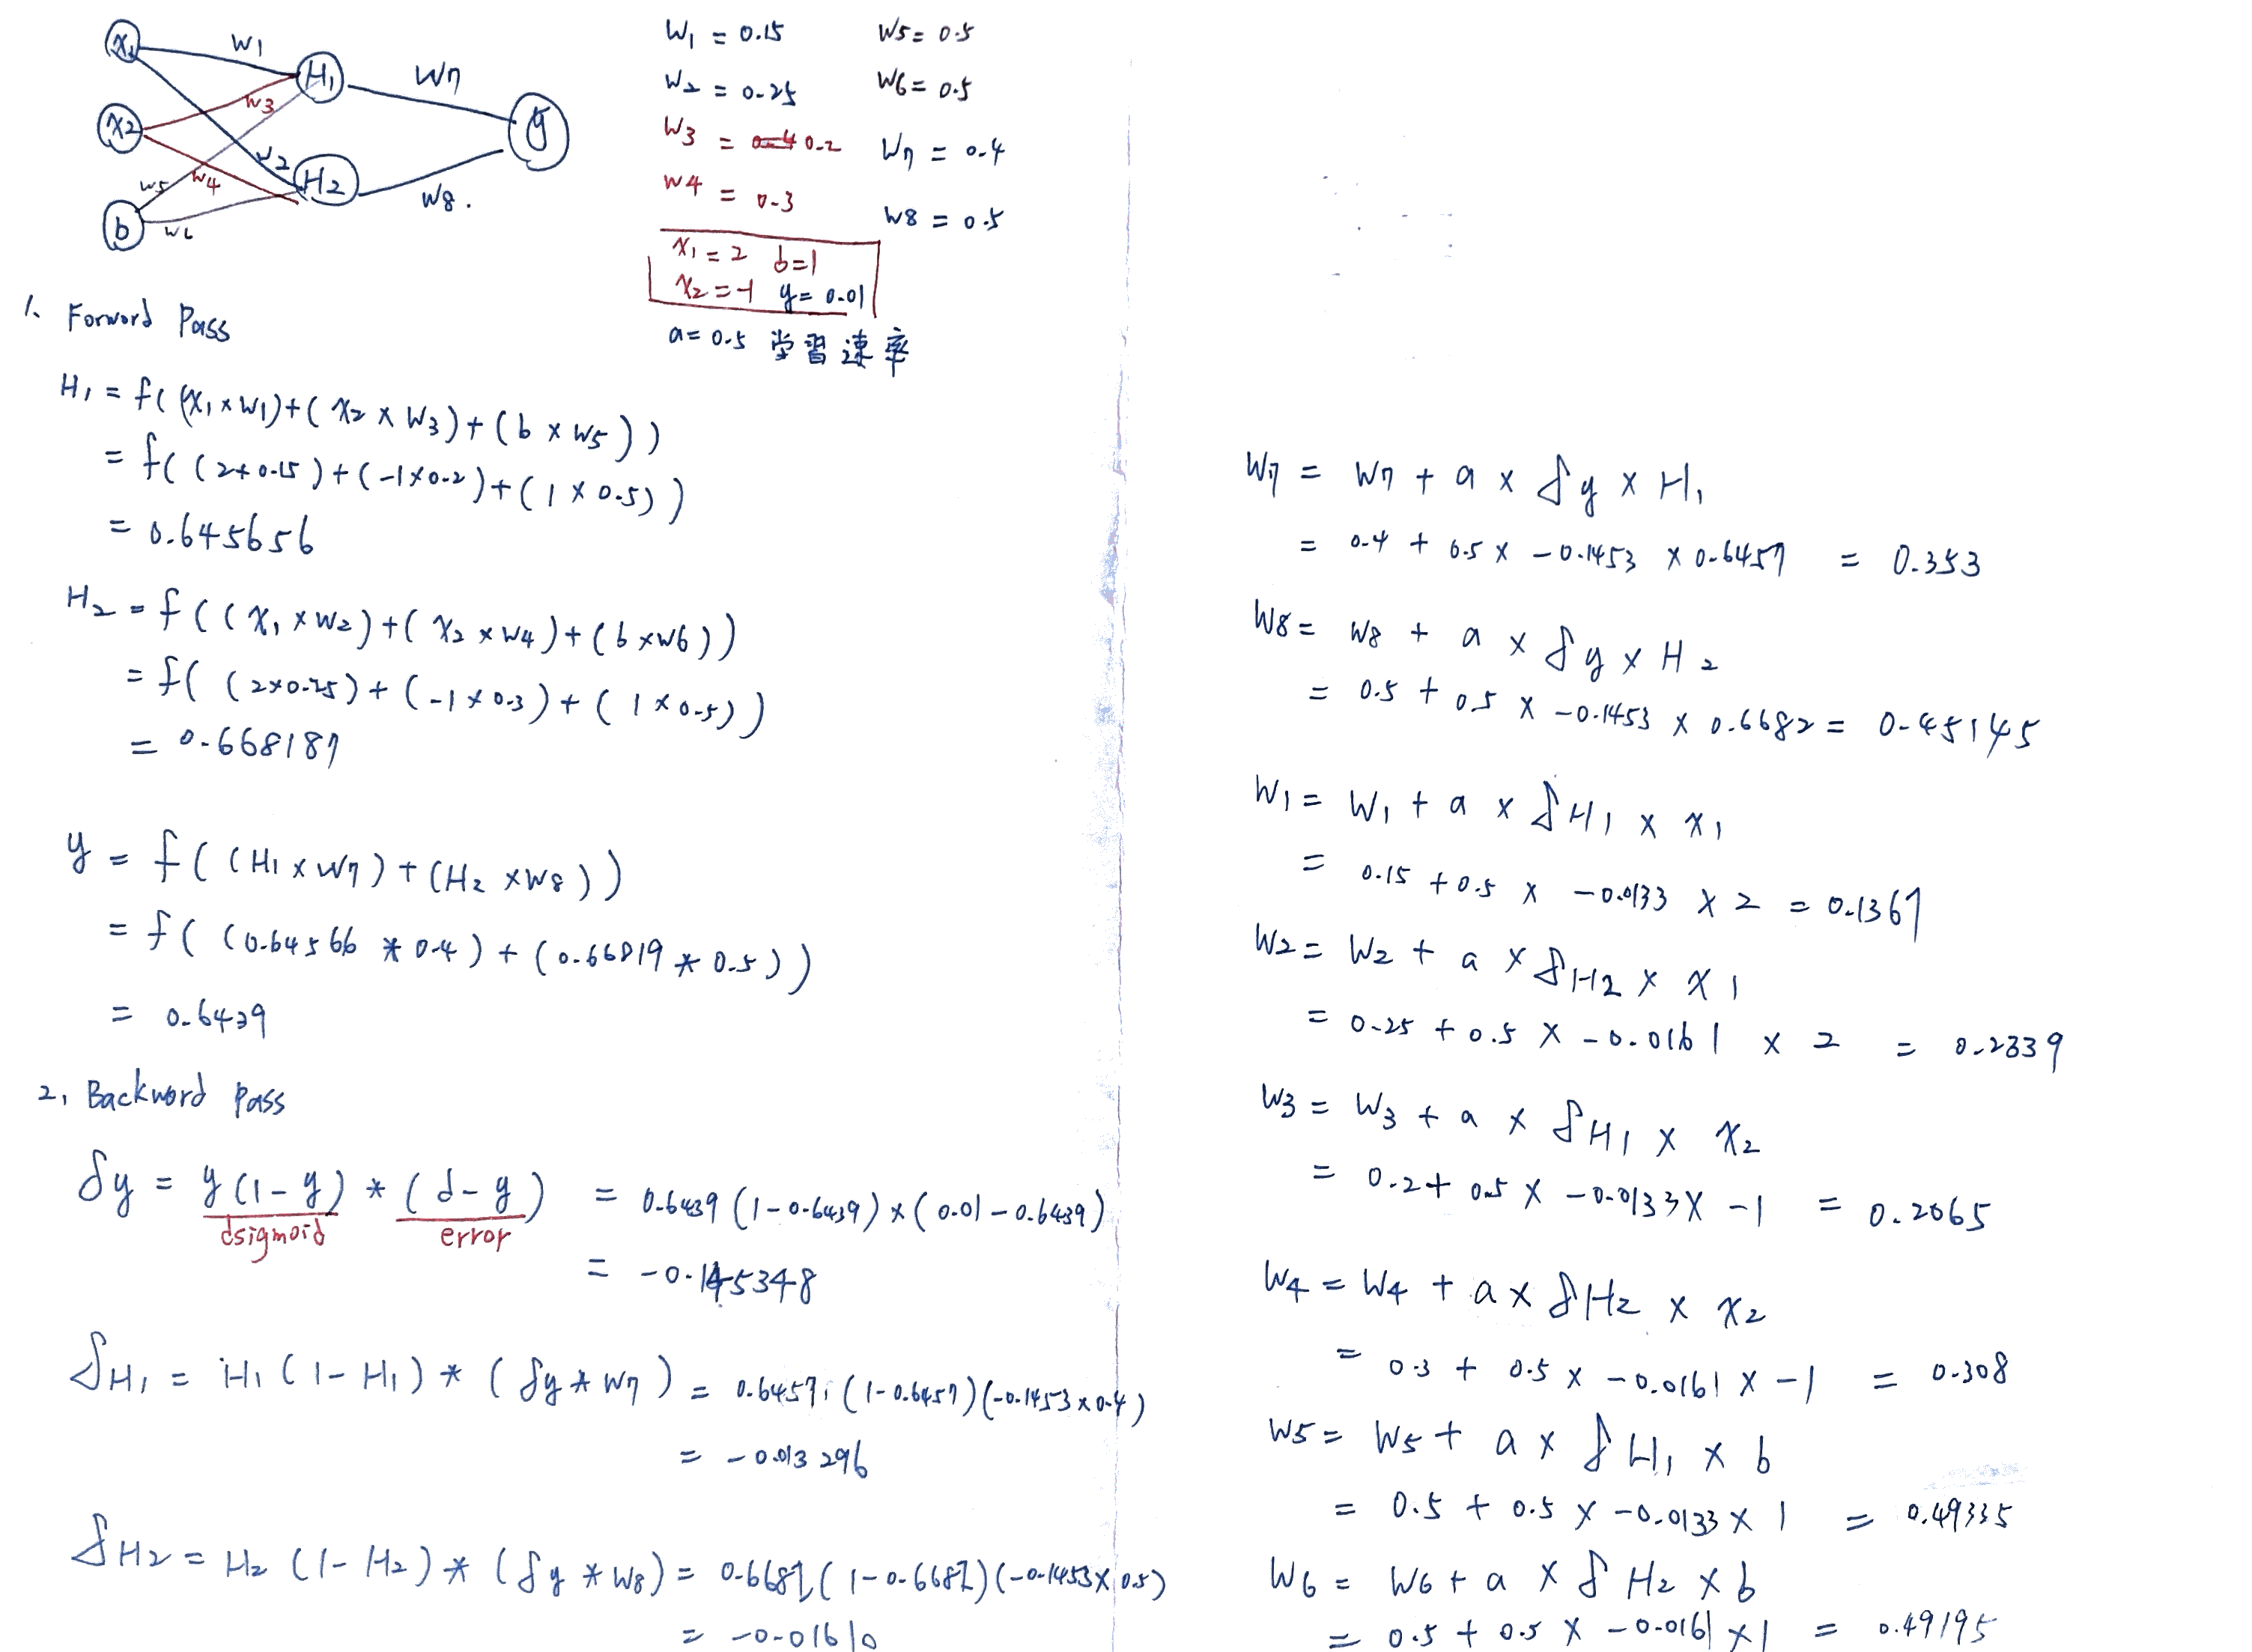 x1 w1 H1 w7 y
x2 w3 w2 H2 w8.
b w5 w4 w6
W1 = 0.15 W5 = 0.5
W2 = 0.25 W6 = 0.5
W3 = 0.4 0.2 W7 = 0.4
W4 = 0.3 W8 = 0.5
x1 = 2 b=1
x2 = -1 y = 0.01
a = 0.5 学習速率
1. Forword Pass
H1 = f((x1 × w1)+(x2 × w3)+(b × w5))
= f((2+0.15)+(-1×0.2)+(1×0.5))
= 0.645656
H2 = f((x1 × w2)+(x2 × w4)+(b × w6))
= f((2×0.25)+(-1×0.3)+(1×0.5))
= 0.668187
y = f((H1 × w7)+(H2 × w8))
= f((0.64566 * 0.4)+(0.66819 * 0.5))
= 0.6439
2, Backword Pass
δy = y(1-y) * (d-y) = 0.6439(1-0.6439)×(0.01-0.6439)
dsigmoid error
= -0.145348
δH1 = H1(1-H1) * (δy * w7) = 0.6457(1-0.6457)(-0.1453×0.4)
= -0.013296
δH2 = H2(1-H2) * (δy * w8) = 0.6682(1-0.6682)(-0.1453×0.5)
= -0.01610
W7 = W7 + a × δy × H1
= 0.4 + 0.5 × -0.1453 × 0.6457 = 0.353
W8 = W8 + a × δy × H2
= 0.5 + 0.5 × -0.1453 × 0.6682 = 0.45145
W1 = W1 + a × δH1 × x1
= 0.15 + 0.5 × -0.0133 × 2 = 0.1367
W2 = W2 + a × δH2 × x1
= 0.25 + 0.5 × -0.0161 × 2 = 0.2339
W3 = W3 + a × δH1 × x2
= 0.2 + 0.5 × -0.0133 × -1 = 0.2065
W4 = W4 + a × δH2 × x2
= 0.3 + 0.5 × -0.0161 × -1 = 0.308
W5 = W5 + a × δH1 × b
= 0.5 + 0.5 × -0.0133 × 1 = 0.49335
W6 = W6 + a × δH2 × b
= 0.5 + 0.5 × -0.0161 × 1 = 0.49195